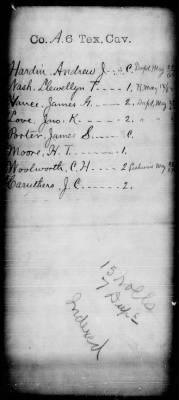 Co. A. 6 Tex. Cav.
Hardin, Andrew J. C. Dupl. May
Nash, Llewellyn T. 1. R. May
Vance, James G. 2. Dupl. May
Love, Jno. K. 2. " "
Porter, James S. C.
Moore, H. T. 1.
Woolworth, C. H. 2 May
Caruthers, J. C. 2.
15 rolls
7 Dups
Indexed